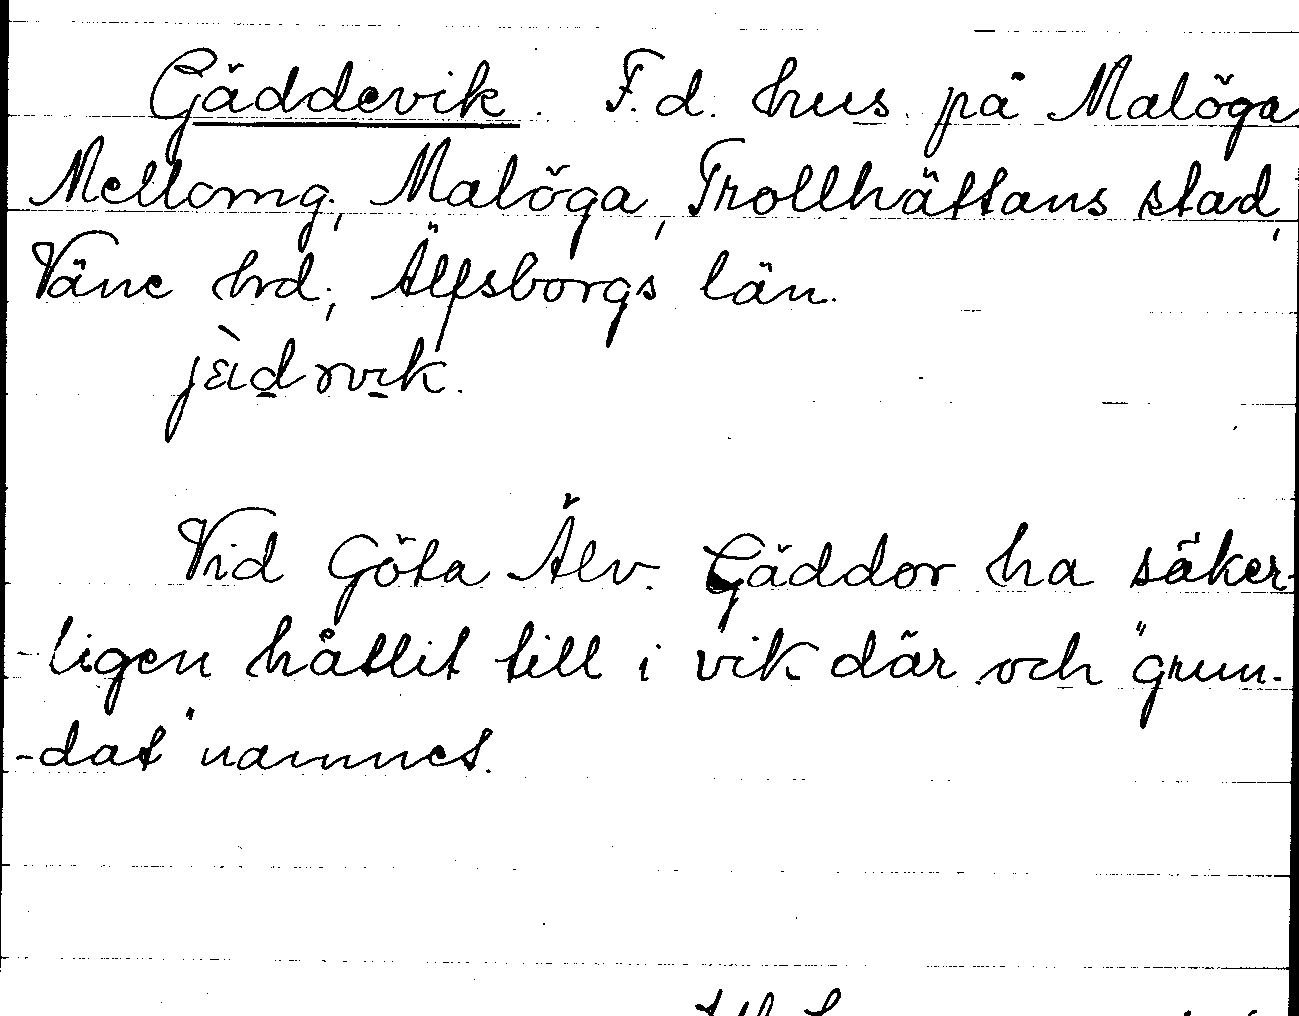 Gäddevik. F.d. hus på Malöga
Mellomg., Malöga, Trollhättans stad,
Väne hrd., Älfsborgs län.
Vid Göta Älv. Gäddor ha säker-
-ligen hållit till i vik där och "grun-
-dat" namnet.